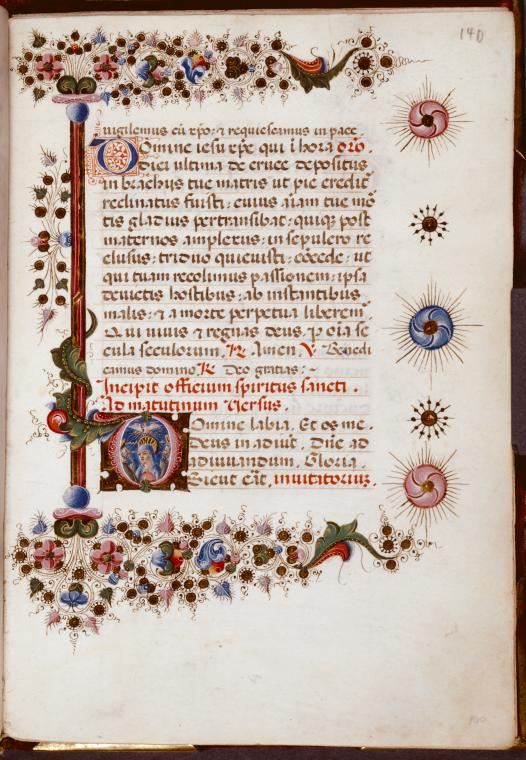 140
uigilemus cū xp̄o: ⁊ requiescamus in pace.
Domine iesu xp̄e qui ī hora oro.
diei ultima de cruce depositus
in brachiis tue matris ut pie credit̄
reclinatus fuisti: cuius aīam tue mē
tis gladius pertransibat: quiqꝫ post
maternos amplexus: in sepulcro re
clusus: triduo quieuisti: cōcede: ut
qui tuam recolimus passionem: ipsa
deuictis hostibus: ab instantibus
malis: ⁊ a morte perpetua liberem̄
Qui uiuis ⁊ regnas deus. P̱ oīa se
cula seculorum. ℟ Amen. ℣. Benedi
camus domino. ℟ Deo gratias:
Incipit officium spiritus sancti.
Ad matutinum Versus.
Domine labia. Et os me.
Deus in adiut̄. Dn̄e ad
adiuuandum. Gloria.
Sicut erāt. inuitatoriuꝫ.